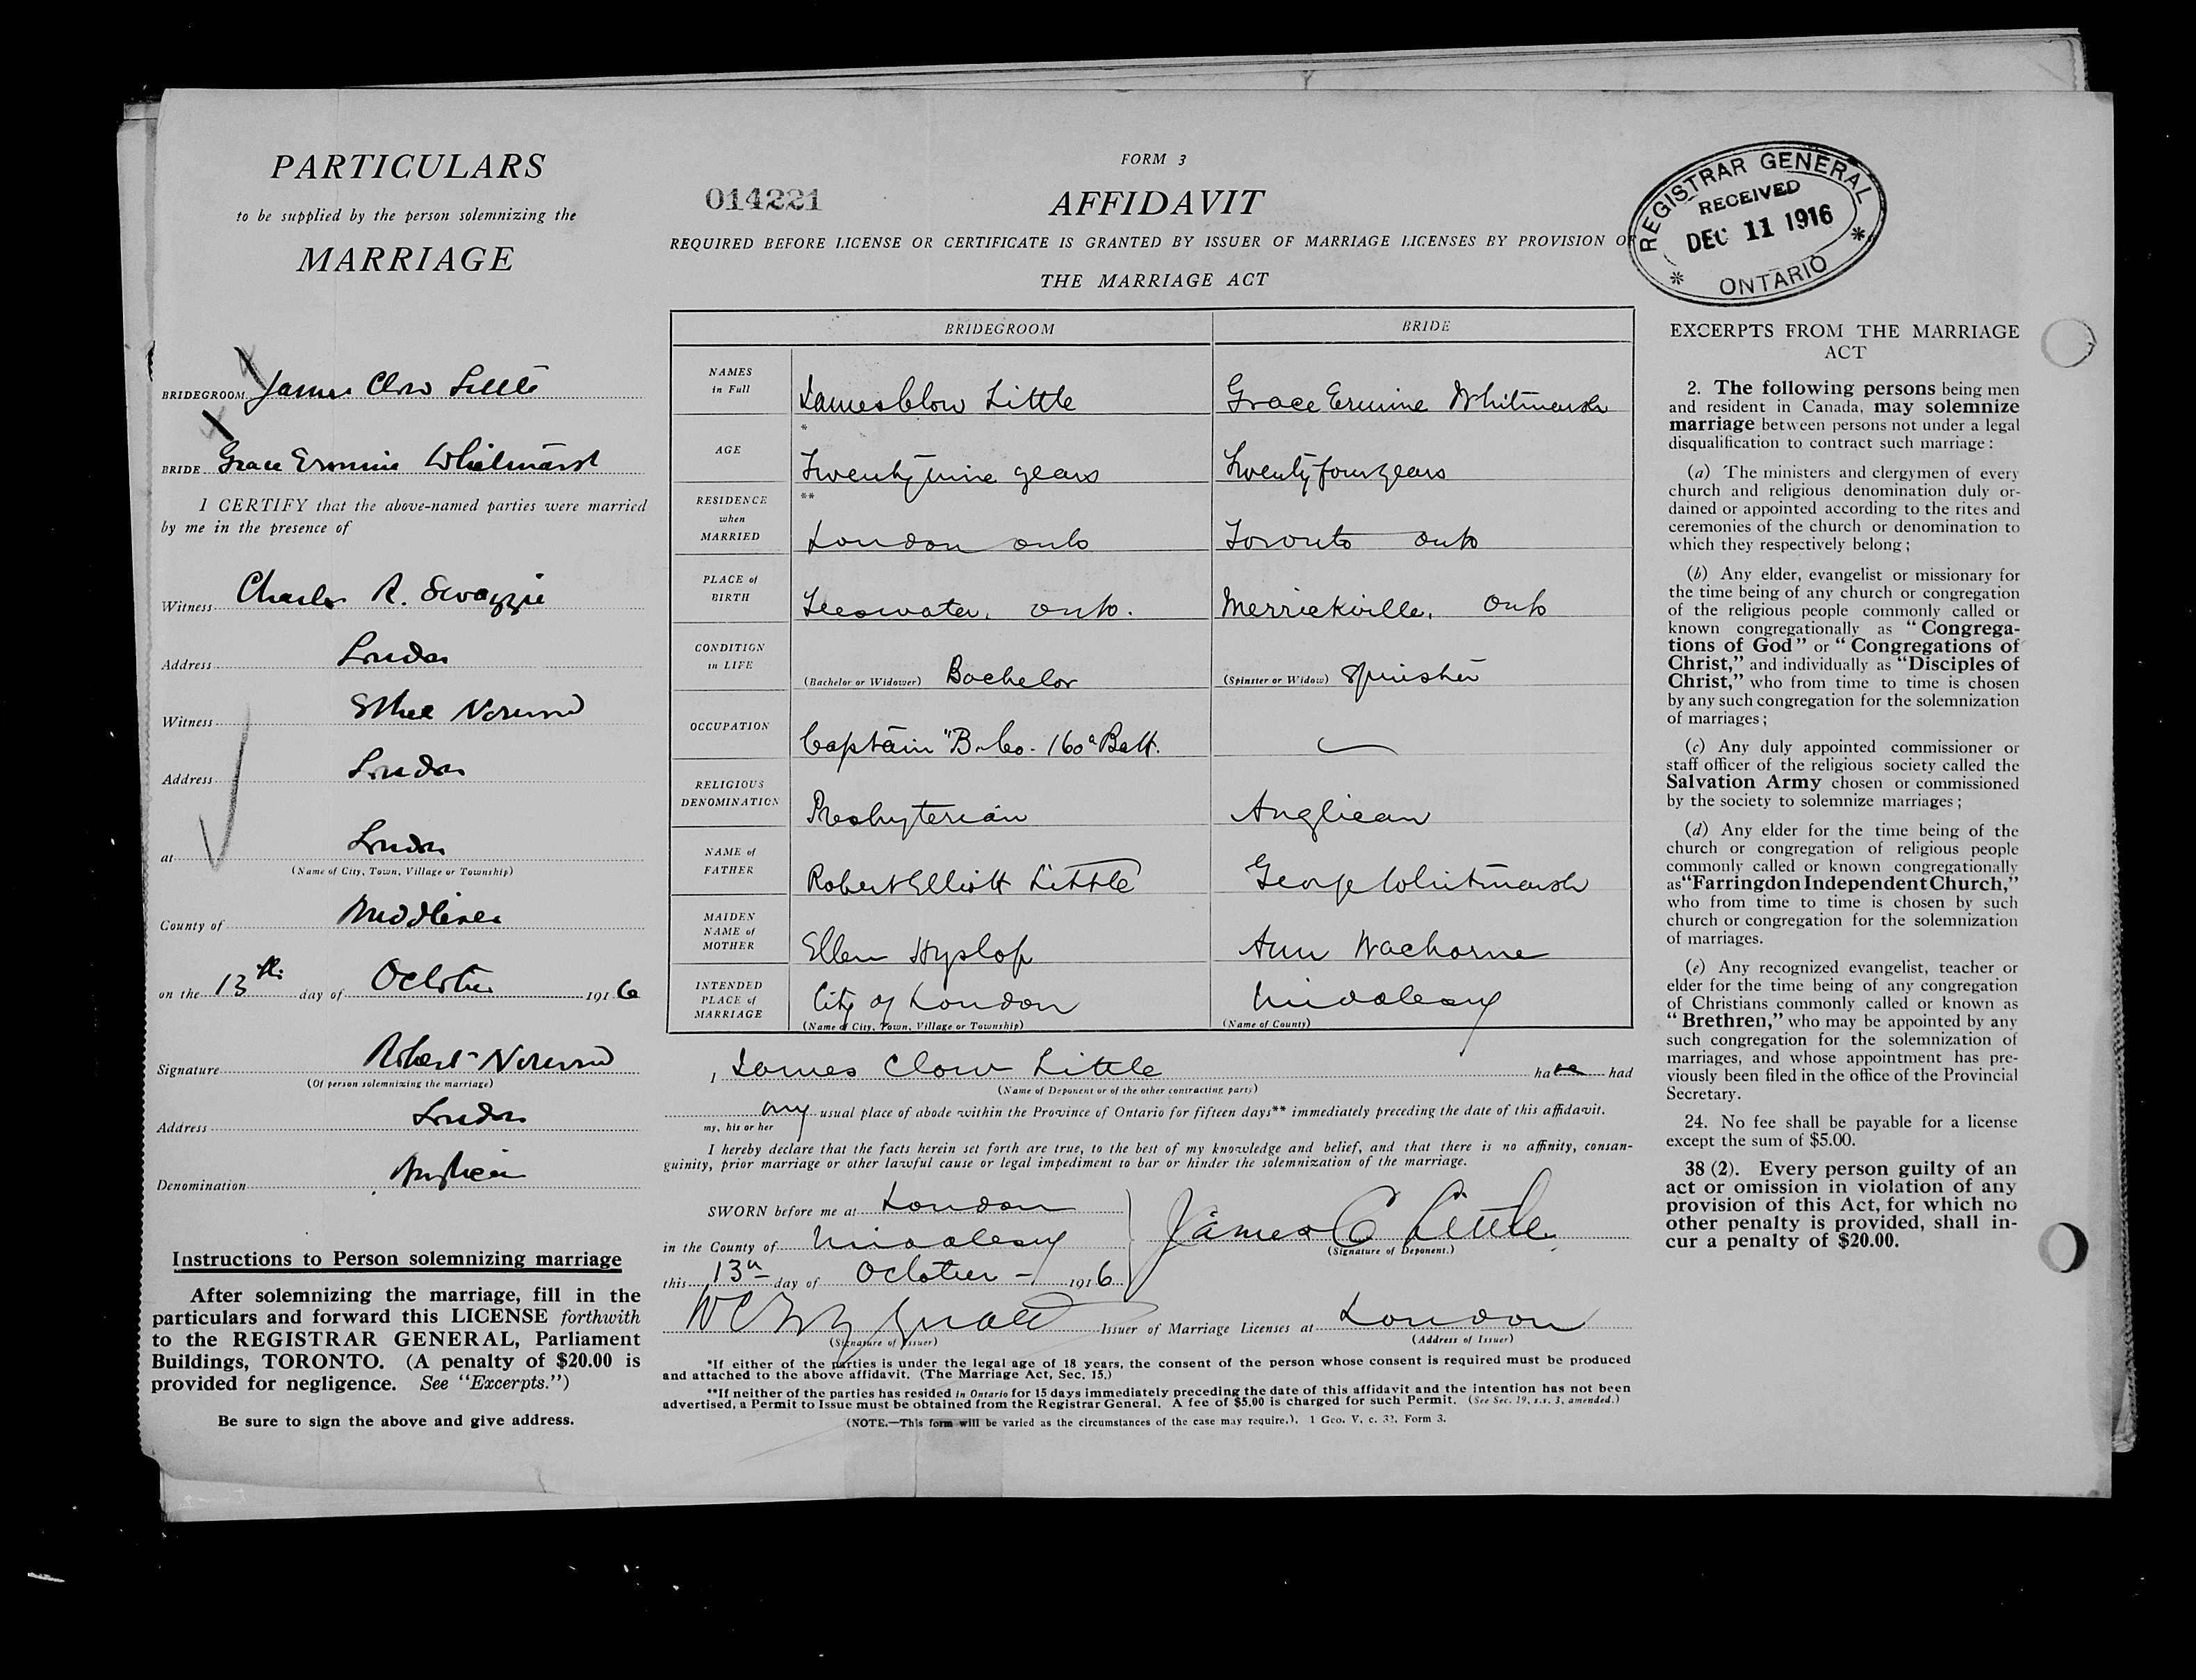 PARTICULARS
to be supplied by the person solemnizing the
MARRIAGE
BRIDEGROOM James Clow Little
BRIDE Grace Ermine Whitmarsh
I CERTIFY that the above-named parties were married
by me in the presence of
Witness Charles R. Swazzie
Address London
Witness Ethel Norwood
Address London
at London
(Name of City, Town, Village or Township)
County of Middlesex
on the 13th day of October 1916
Signature Robert Norwood
(Of person solemnizing the marriage)
Address London
Denomination Anglican
Instructions to Person solemnizing marriage
After solemnizing the marriage, fill in the
particulars and forward this LICENSE forthwith
to the REGISTRAR GENERAL, Parliament
Buildings, TORONTO. (A penalty of $20.00 is
provided for negligence. See "Excerpts.")
Be sure to sign the above and give address.
FORM 3
014221
AFFIDAVIT
REQUIRED BEFORE LICENSE OR CERTIFICATE IS GRANTED BY ISSUER OF MARRIAGE LICENSES BY PROVISION OF
THE MARRIAGE ACT
BRIDEGROOM BRIDE
NAMES in Full James Clow Little Grace Ermine Whitmarsh
AGE * Twenty nine years Twenty four years
RESIDENCE when MARRIED ** London Ont Toronto Ont
PLACE of BIRTH Teeswater, Ont. Merrickville, Ont
CONDITION in LIFE (Bachelor or Widower) Bachelor (Spinster or Widow) Spinster
OCCUPATION Captain "B. Co. 160th Batt.
RELIGIOUS DENOMINATION Presbyterian Anglican
NAME of FATHER Robert Elliott Little George Whitmarsh
MAIDEN NAME of MOTHER Ellen Hyslop Ann Wachorne
INTENDED PLACE of MARRIAGE City of London Middlesex
(Name of City, Town, Village or Township) (Name of County)
I James Clow Little have had
(Name of Deponent or of the other contracting party)
my usual place of abode within the Province of Ontario for fifteen days** immediately preceding the date of this affidavit.
my, his or her
I hereby declare that the facts herein set forth are true, to the best of my knowledge and belief, and that there is no affinity, consan-
guinity, prior marriage or other lawful cause or legal impediment to bar or hinder the solemnization of the marriage.
SWORN before me at London
in the County of Middlesex
this 13th day of October 1916
James C Little
(Signature of Deponent.)
Issuer of Marriage Licenses at London
(Signature of Issuer) (Address of Issuer)
*If either of the parties is under the legal age of 18 years, the consent of the person whose consent is required must be produced
and attached to the above affidavit. (The Marriage Act, Sec. 15.)
**If neither of the parties has resided in Ontario for 15 days immediately preceding the date of this affidavit and the intention has not been
advertised, a Permit to Issue must be obtained from the Registrar General. A fee of $5.00 is charged for such Permit. (See Sec. 19, s.s. 3, amended.)
(NOTE.—This form will be varied as the circumstances of the case may require.). 1 Geo. V, c. 32, Form 3.
REGISTRAR GENERAL
RECEIVED
DEC 11 1916
* ONTARIO *
EXCERPTS FROM THE MARRIAGE
ACT
2. The following persons being men
and resident in Canada, may solemnize
marriage between persons not under a legal
disqualification to contract such marriage:
(a) The ministers and clergymen of every
church and religious denomination duly or-
dained or appointed according to the rites and
ceremonies of the church or denomination to
which they respectively belong;
(b) Any elder, evangelist or missionary for
the time being of any church or congregation
of the religious people commonly called or
known congregationally as "Congrega-
tions of God" or "Congregations of
Christ," and individually as "Disciples of
Christ," who from time to time is chosen
by any such congregation for the solemnization
of marriages;
(c) Any duly appointed commissioner or
staff officer of the religious society called the
Salvation Army chosen or commissioned
by the society to solemnize marriages;
(d) Any elder for the time being of the
church or congregation of religious people
commonly called or known congregationally
as "Farringdon Independent Church,"
who from time to time is chosen by such
church or congregation for the solemnization
of marriages.
(e) Any recognized evangelist, teacher or
elder for the time being of any congregation
of Christians commonly called or known as
"Brethren," who may be appointed by any
such congregation for the solemnization of
marriages, and whose appointment has pre-
viously been filed in the office of the Provincial
Secretary.
24. No fee shall be payable for a license
except the sum of $5.00.
38 (2). Every person guilty of an
act or omission in violation of any
provision of this Act, for which no
other penalty is provided, shall in-
cur a penalty of $20.00.